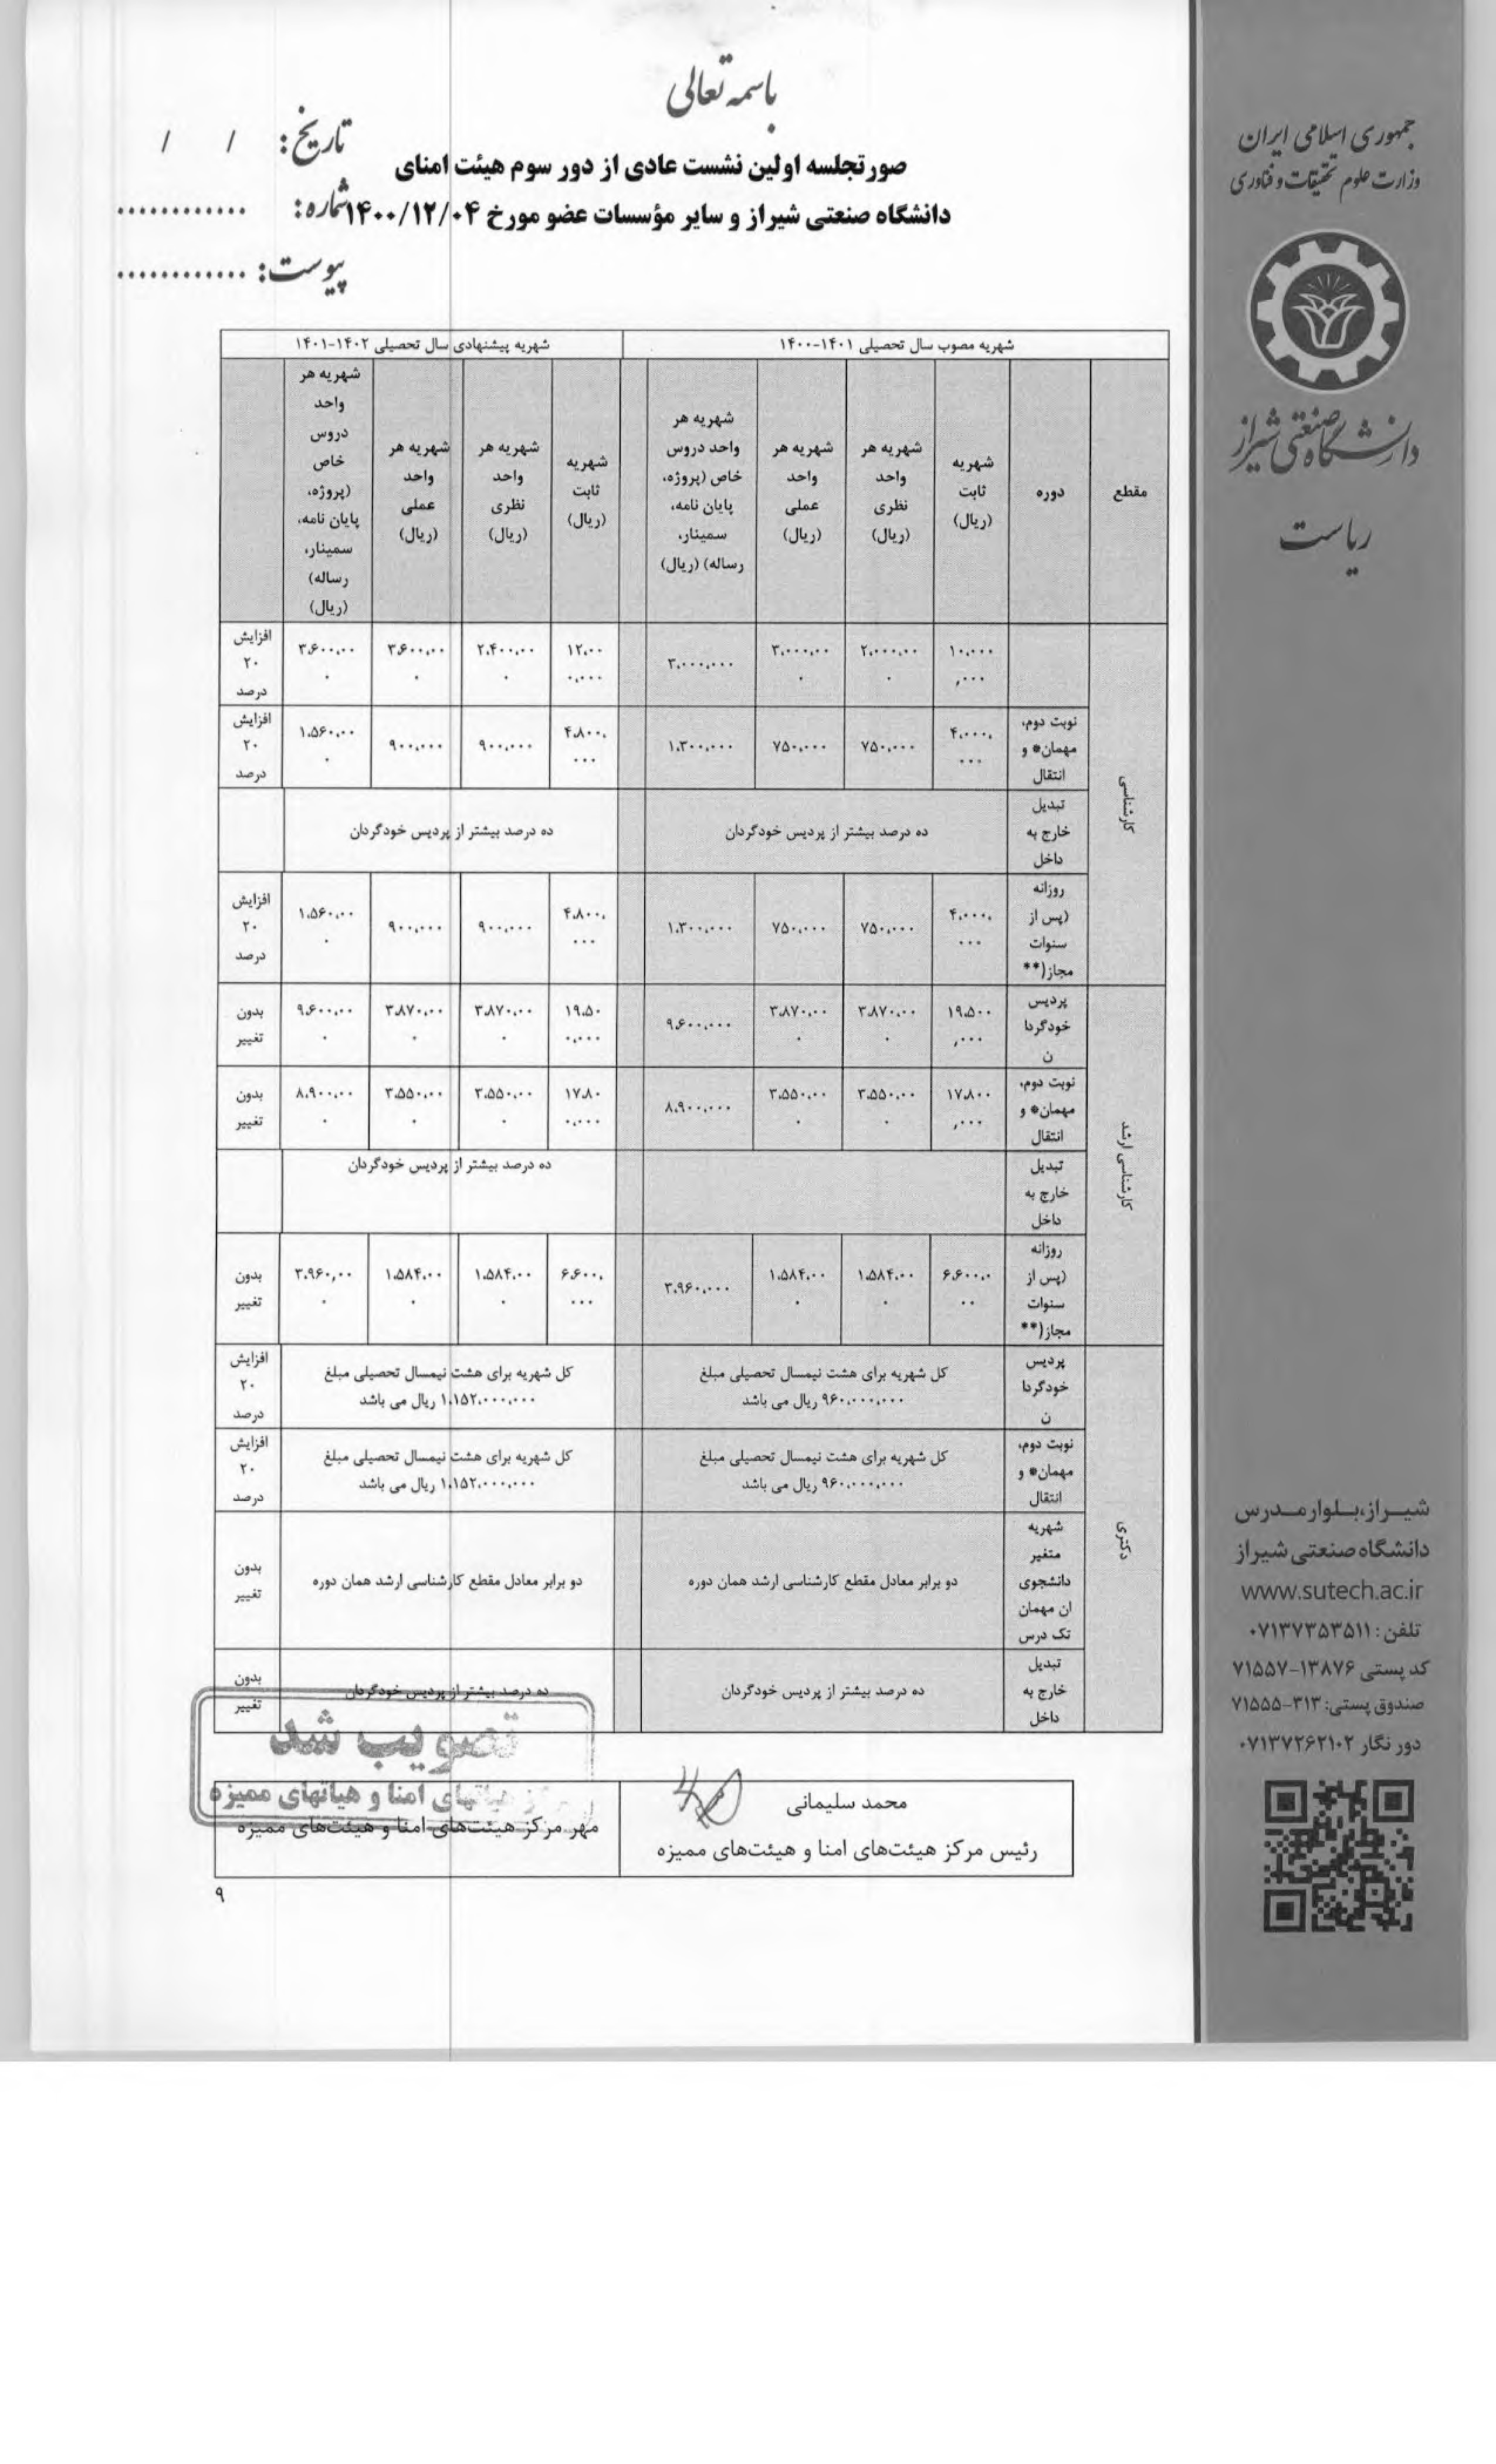 باسمه تعالی
صورتجلسه اولین نشست عادی از دور سوم هیئت امنای
دانشگاه صنعتی شیراز و سایر مؤسسات عضو مورخ ۱۴۰۰/۱۲/۰۴
تاریخ: / /
شماره: ............
پیوست: ............
جمهوری اسلامی ایران
وزارت علوم تحقیقات و فناوری
دانشگاه صنعتی شیراز
ریاست
شهریه مصوب سال تحصیلی ۱۴۰۱-۱۴۰۰
شهریه پیشنهادی سال تحصیلی ۱۴۰۲-۱۴۰۱
مقطع
دوره
شهریه
ثابت
(ریال)
شهریه هر
واحد
نظری
(ریال)
شهریه هر
واحد
عملی
(ریال)
شهریه هر
واحد دروس
خاص (پروژه،
پایان نامه،
سمینار،
رساله) (ریال)
شهریه
ثابت
(ریال)
شهریه هر
واحد
نظری
(ریال)
شهریه هر
واحد
عملی
(ریال)
شهریه هر
واحد
دروس
خاص
(پروژه،
پایان نامه،
سمینار،
رساله)
(ریال)
کارشناسی
۱۰،۰۰۰
،۰۰۰
۲،۰۰۰،۰۰
۰
۳،۰۰۰،۰۰
۰
۳،۰۰۰،۰۰۰
۱۲،۰۰
۰،۰۰۰
۲،۴۰۰،۰۰
۰
۳،۶۰۰،۰۰
۰
۳،۶۰۰،۰۰
۰
افزایش
۲۰
درصد
نوبت دوم،
مهمان* و
انتقال
۴،۰۰۰،
۰۰۰
۷۵۰،۰۰۰
۷۵۰،۰۰۰
۱،۳۰۰،۰۰۰
۴،۸۰۰،
۰۰۰
۹۰۰،۰۰۰
۹۰۰،۰۰۰
۱،۵۶۰،۰۰
۰
افزایش
۲۰
درصد
تبدیل
خارج به
داخل
ده درصد بیشتر از پردیس خودگردان
ده درصد بیشتر از پردیس خودگردان
روزانه
(پس از
سنوات
مجاز(**
۴،۰۰۰،
۰۰۰
۷۵۰،۰۰۰
۷۵۰،۰۰۰
۱،۳۰۰،۰۰۰
۴،۸۰۰،
۰۰۰
۹۰۰،۰۰۰
۹۰۰،۰۰۰
۱،۵۶۰،۰۰
۰
افزایش
۲۰
درصد
کارشناسی ارشد
پردیس
خودگردا
ن
۱۹،۵۰۰
،۰۰۰
۳،۸۷۰،۰۰
۰
۳،۸۷۰،۰۰
۰
۹،۶۰۰،۰۰۰
۱۹،۵۰
۰،۰۰۰
۳،۸۷۰،۰۰
۰
۳،۸۷۰،۰۰
۰
۹،۶۰۰،۰۰
۰
بدون
تغییر
نوبت دوم،
مهمان* و
انتقال
۱۷،۸۰۰
،۰۰۰
۳،۵۵۰،۰۰
۰
۳،۵۵۰،۰۰
۰
۸،۹۰۰،۰۰۰
۱۷،۸۰
۰،۰۰۰
۳،۵۵۰،۰۰
۰
۳،۵۵۰،۰۰
۰
۸،۹۰۰،۰۰
۰
بدون
تغییر
تبدیل
خارج به
داخل
ده درصد بیشتر از پردیس خودگردان
روزانه
(پس از
سنوات
مجاز(**
۶،۶۰۰،۰
۰۰
۱،۵۸۴،۰۰
۰
۱،۵۸۴،۰۰
۰
۳،۹۶۰،۰۰۰
۶،۶۰۰،
۰۰۰
۱،۵۸۴،۰۰
۰
۱،۵۸۴،۰۰
۰
۳،۹۶۰,۰۰
۰
بدون
تغییر
دکتری
پردیس
خودگردا
ن
کل شهریه برای هشت نیمسال تحصیلی مبلغ
۹۶۰،۰۰۰،۰۰۰ ریال می باشد
کل شهریه برای هشت نیمسال تحصیلی مبلغ
۱،۱۵۲،۰۰۰،۰۰۰ ریال می باشد
افزایش
۲۰
درصد
نوبت دوم،
مهمان* و
انتقال
کل شهریه برای هشت نیمسال تحصیلی مبلغ
۹۶۰،۰۰۰،۰۰۰ ریال می باشد
کل شهریه برای هشت نیمسال تحصیلی مبلغ
۱،۱۵۲،۰۰۰،۰۰۰ ریال می باشد
افزایش
۲۰
درصد
شهریه
متغیر
دانشجوی
ان مهمان
تک درس
دو برابر معادل مقطع کارشناسی ارشد همان دوره
دو برابر معادل مقطع کارشناسی ارشد همان دوره
بدون
تغییر
تبدیل
خارج به
داخل
ده درصد بیشتر از پردیس خودگردان
ده درصد بیشتر از پردیس خودگردان
بدون
تغییر
تصویب شد
مرکز هیاتهای امنا و هیاتهای ممیزه
محمد سلیمانی
رئیس مرکز هیئت‌های امنا و هیئت‌های ممیزه
مهر مرکز هیئت‌های امنا و هیئت‌های ممیزه
۹
شیراز،بلوار مدرس
دانشگاه صنعتی شیراز
www.sutech.ac.ir
تلفن : ۰۷۱۳۷۳۵۳۵۱۱
کد پستی ۱۳۸۷۶-۷۱۵۵۷
صندوق پستی: ۳۱۳-۷۱۵۵۵
دور نگار ۰۷۱۳۷۲۶۲۱۰۲